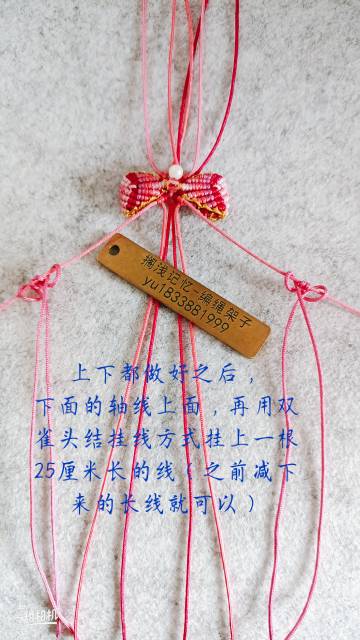 搁浅记忆-编绳架子
yu1833881999
上下都做好之后，
下面的轴线上面，再用双
雀头结挂线方式挂上一根
25厘米长的线（之前减下
来的长线就可以）